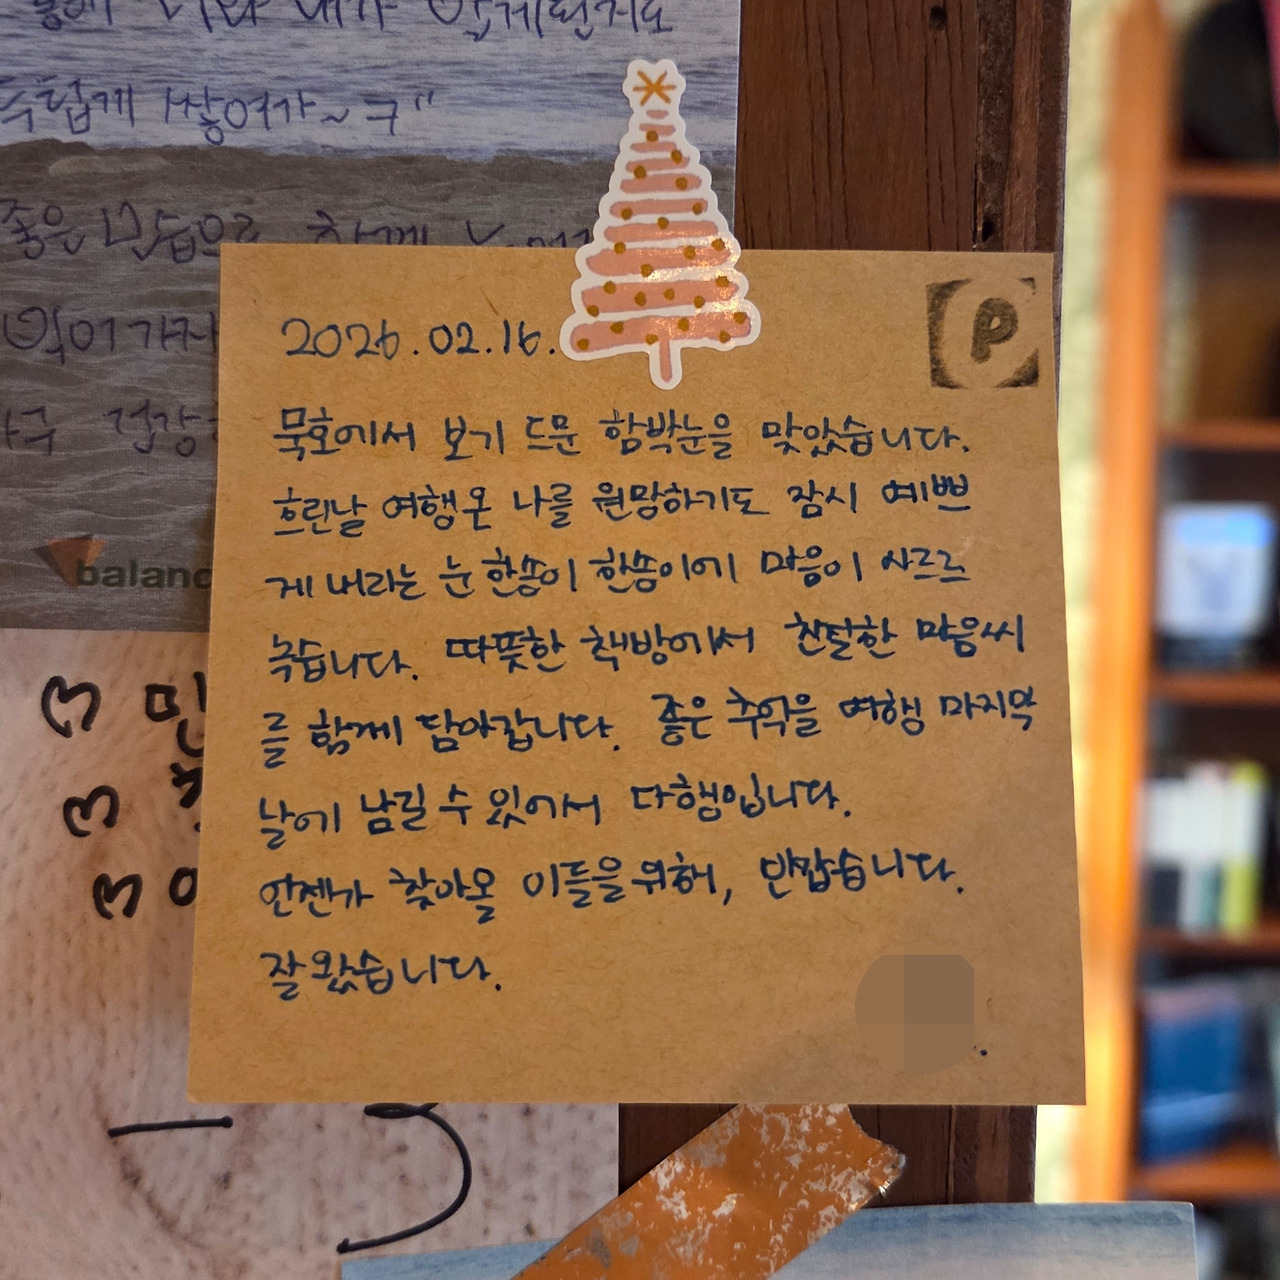 두텁게 쌓여가~구"
좋은 모습으로
balanc
2026.02.16.
P
묵호에서 보기 드문 함박눈을 맞았습니다.
흐린날 여행온 나를 원망하기도 잠시 예쁘
게 내리는 눈 한송이 한송이에 마음이 사르르
녹습니다. 따뜻한 책방에서 친절한 마음씨
를 함께 담아갑니다. 좋은 추억을 여행 마지막
날에 남길 수 있어서 다행입니다.
언젠가 찾아올 이들을 위해, 반갑습니다.
잘 왔습니다.